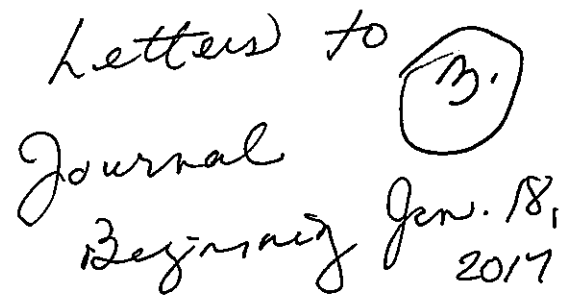 Letters to
3.
Journal
Beginning Jan. 18,
2017